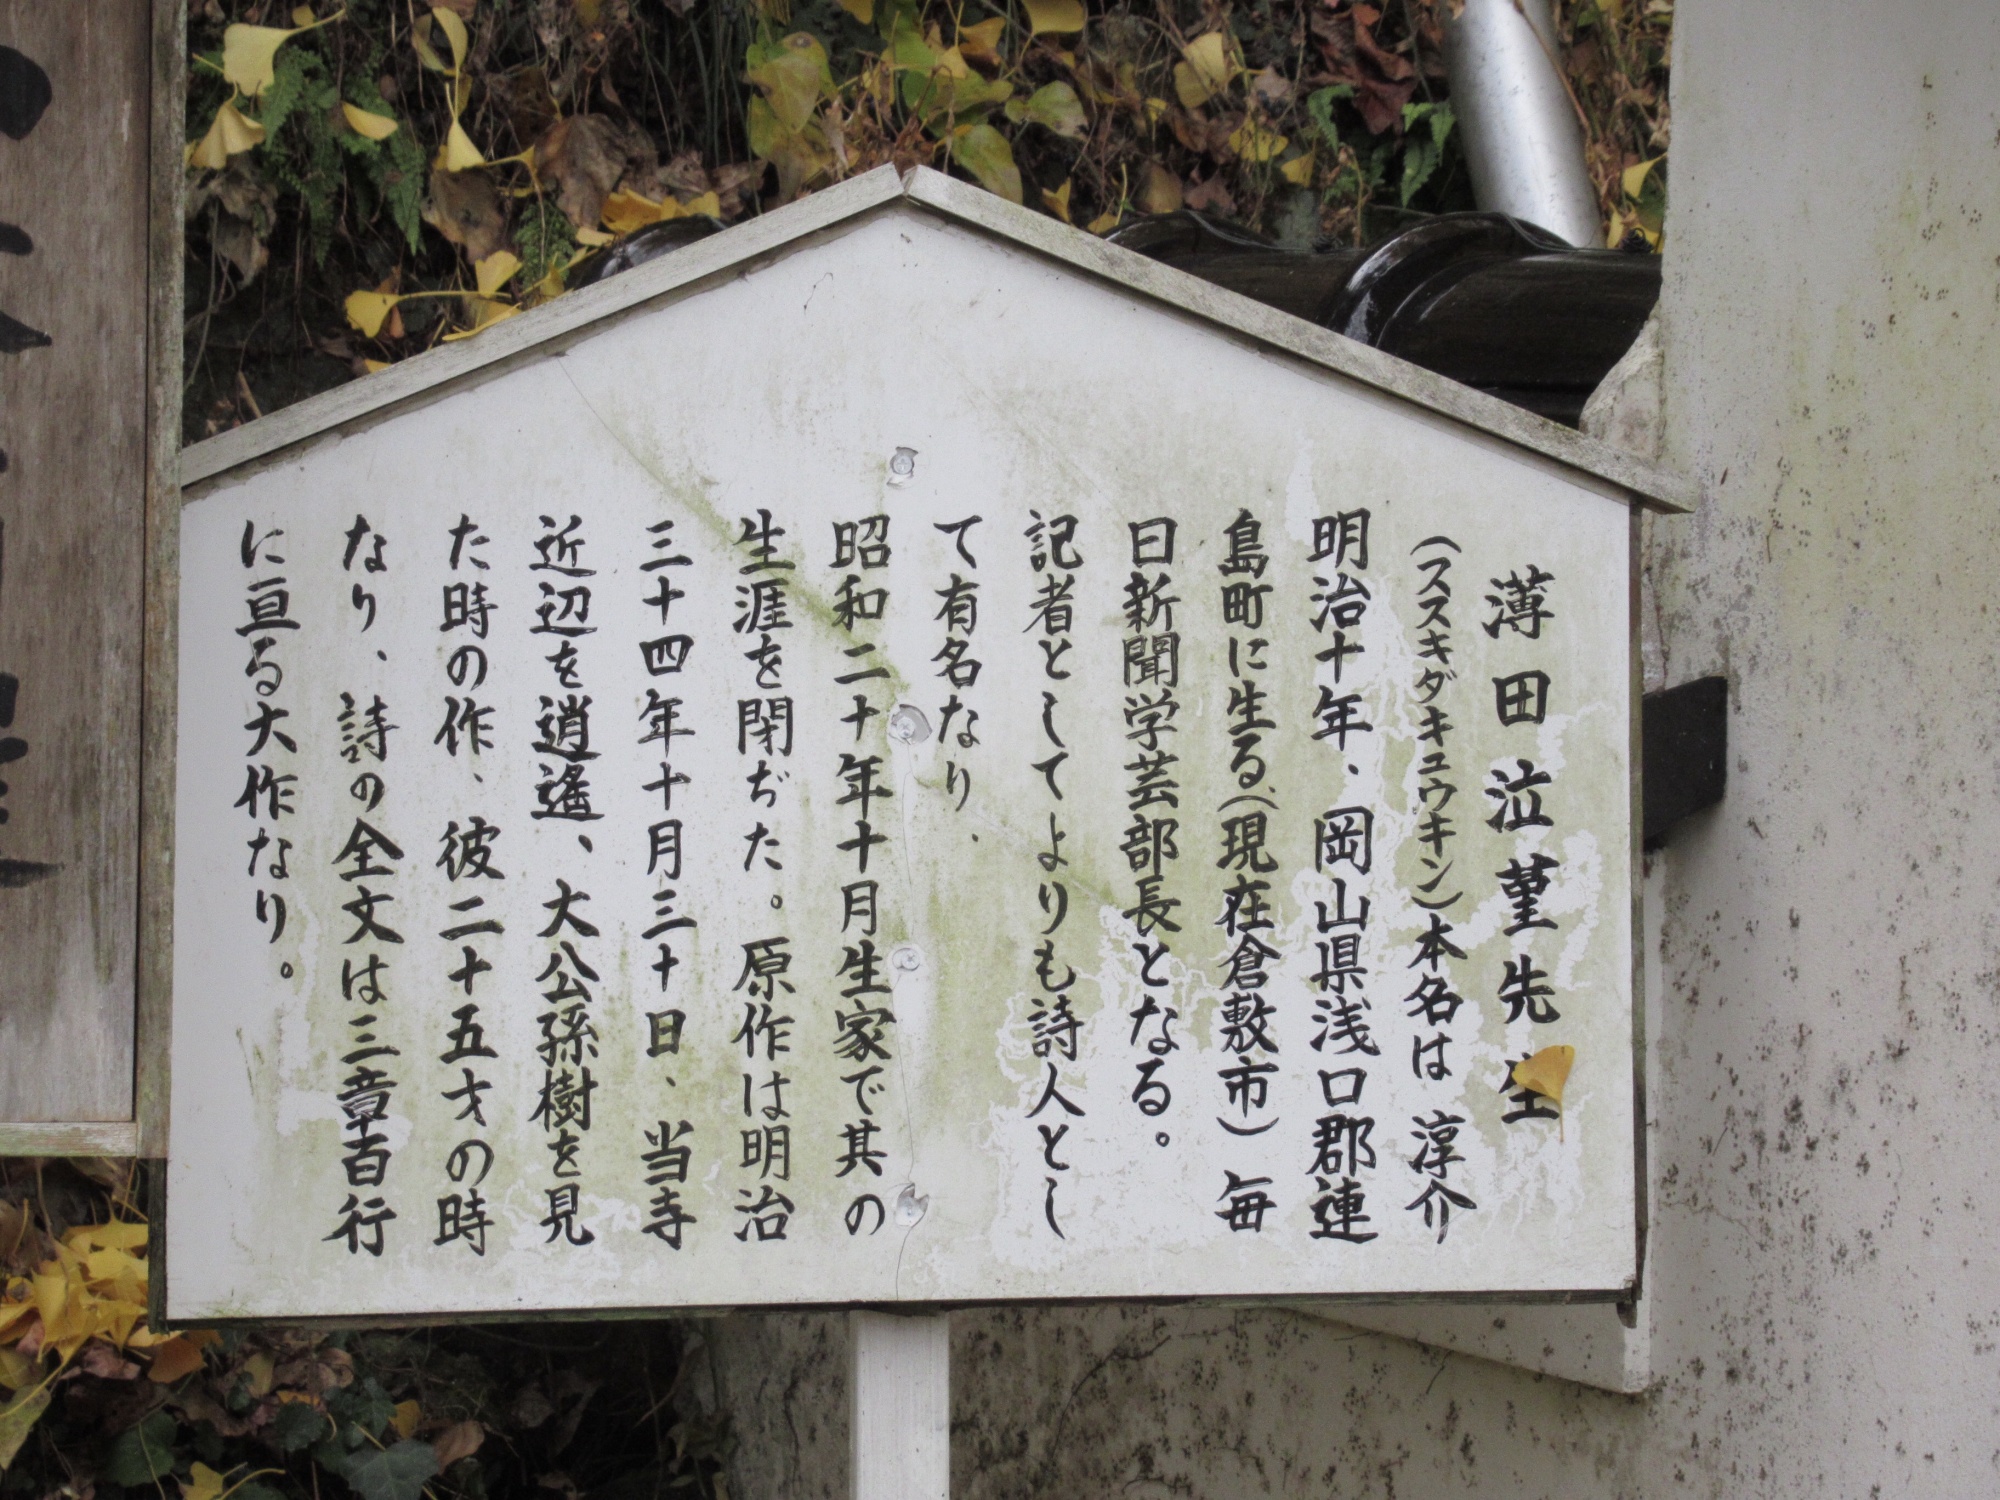 薄田泣菫先生
(ススキダキュウキン)本名は 淳介
明治十年、岡山県浅口郡連
島町に生る(現在倉敷市) 毎
日新聞学芸部長となる。
記者としてよりも詩人とし
て有名なり、
昭和二十年十月生家で其の
生涯を閉ぢた。原作は明治
三十四年十月三十日、当寺
近辺を逍遙、大公孫樹を見
た時の作、彼二十五才の時
なり、詩の全文は三章百行
に亘る大作なり。